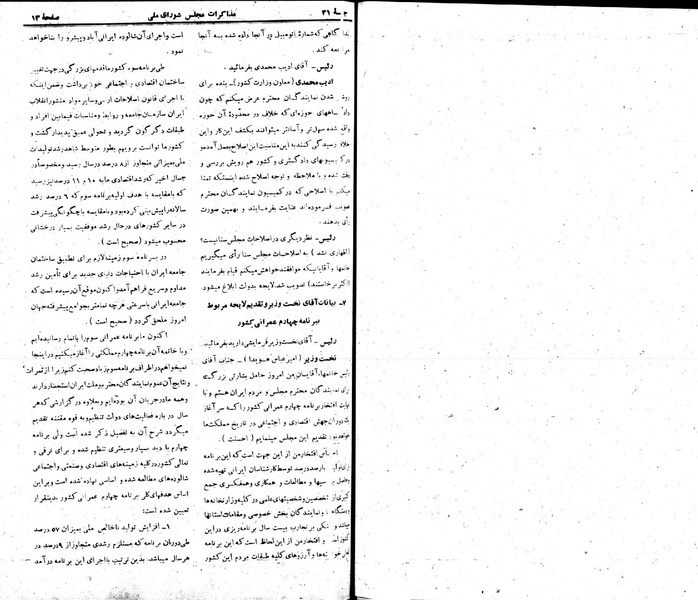 صفحهٔ ۱۳
مذاکرات مجلس شورای ملی
جلسه ۳۱
گاهی که شمارهٔ اتومبیل در آنجا داده شده به آنجا
مراجعه کند.
رئیس- آقای ادیب محمدی بفرمائید.
ادیب محمدی (معاون وزارت کشور)- بنده برای
روشن شدن نمایندگان محترم عرض میکنم که چون
دادگاههای حوزه‌ای که خلاف در محدودهٔ آن حوزه
واقع شده سهل‌تر و آسانتر میتوانند بکشف این کار و این
رسیدگی کنند به این مناسبت این اصلاح بعمل آمد و
در کمیسیونهای دادگستری و کشور هم رویش بررسی و
شده و با ملاحظه و توجه اصلاح شده اینستکه تمنا
میکنم با اصلاحی که در کمیسیون نمایندگان محترم
تصویب فرموده‌اند عنایت بفرمایند و بهمین صورت
رأی بدهند.
رئیس- نظر دیگری در اصلاحات مجلس سنا نیست؟
(اظهاری نشد) به اصلاحات مجلس سنا رأی میگیریم
خانمها و آقایانیکه موافقند خواهش میکنم قیام بفرمایند
(اکثر برخاستند) تصویب شد. لایحه بدولت ابلاغ میشود.
۷- بیانات آقای نخست وزیر و تقدیم لایحه مربوط
ببرنامه چهارم عمرانی کشور
رئیس- آقای نخست وزیر فرمایشی دارید بفرمائید.
نخست وزیر (امیرعباس هویدا)- جناب آقای
رئیس خانمها، آقایان من امروز حامل بشارتی بزرگ
برای نمایندگان محترم مجلس و مردم ایران هستم و با
نهایت افتخار برنامه چهارم عمرانی کشور را که سرآغاز
دوران جهش اقتصادی و اجتماعی در تاریخ مملکت ما
خواهد بود تقدیم این مجلس مینمایم (احسنت).
افتخار من از این جهت است که این برنامه
صددرصد توسط کارشناسان ایرانی تهیه شده
و مطالعات و همکاری و همفکری جمع
کثیری از متخصصین و شخصیتهای علمی در کلیه وزارتخانه‌ها
و نمایندگان بخش خصوصی و مقامات استانها
بر تجارب بیست سال برنامه‌ریزی در این
و افتخار من از این لحاظ است که این برنامه
و آرزوهای کلیه طبقات مردم این کشور
است و اجرای آن شالوده ایرانی آباد و پیشرو را بنا خواهد
نمود.
طی برنامه سوم کشور ما قدمهای بزرگی در جهت تغییر
ساختمان اقتصادی و اجتماعی خود برداشت و ضمن اینکه
با اجرای قانون اصلاحات ارضی و سایر مواد منشور انقلاب
ایران سازمان جامعه و روابط و مناسبات فیمابین افراد و
طبقات دگرگون گردید و تحولی عمیق پدیدار گشت و
کشور ما توانست برویهم بطور متوسط شاهد رشد تولیدات
ملی بمیزانی متجاوز از ۸ درصد در سال رسید و مخصوصاً در
سال اخیر که رشد اقتصادی ما به ۱۰ و ۱۱ درصد نیز رسید
که با مقایسه با هدف اولیه برنامه سوم که ۶ درصد رشد
سالانه را پیش‌بینی کرده بود و با مقایسه با چگونگی پیشرفت
در سایر کشورهای در حال رشد موفقیت بسیار درخشانی
محسوب میشود (صحیح است).
در برنامه سوم زمینه لازم برای تطبیق ساختمان
جامعه ایران با احتیاجات جدید برای تأمین رشد
مداوم و سریع فراهم آمد و اکنون موقع آن رسیده است که
جامعه ایرانی با سرعتی هرچه تمامتر بجوامع پیشرفته جهان
امروز ملحق گردد (صحیح است).
اکنون ما برنامه عمرانی سوم را باتمام رسانده‌ایم
و با خاتمه آن برنامه چهارم مملکتی را آغاز میکنیم در اینجا
نمیخواهم در اطراف برنامه سوم زیاد صحبت کنم زیرا از ثمرات
و نتایج آن عموم نمایندگان محترم و ملت ایران استحضار دارند
و همه ما در جریان آن بوده‌ایم و بعلاوه در گزارشی که هر
سال درباره فعالیت‌های دولت تنظیم و به قوه مقننه تقدیم
میگردد شرح آن به تفصیل ذکر شده است ولی برنامه
چهارم با دید بسیار وسیعتری تنظیم شده و برای ترقی و
تعالی کشور در کلیه زمینه‌های اقتصادی و صنعتی و اجتماعی
شالوده‌های مطالعه شده و اساسی نهاده شده است و بر این
اساس هدفهای کلی برنامه چهارم عمرانی کشور بدینقرار
تعیین شده است:
۱- افزایش تولید ناخالص ملی بمیزان ۵۷ درصد
طی دوران برنامه که مستلزم رشدی متجاوز از ۹ درصد در
هر سال میباشد. بدین ترتیب با اجرای این برنامه درآمد